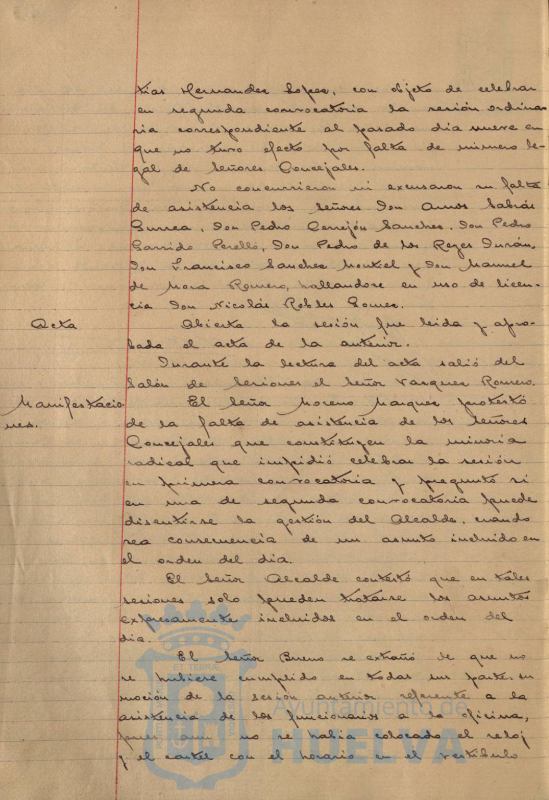 tias Hernandez Lopez, con objeto de celebrar
en segunda convocatoria la sesión ordina
ria correspondiente al pasado dia nueve en
que no tuvo efecto por falta de número le
gal de Señores Concejales.
No concurrieron ni excusaron su falta
de asistencia los Señores Don Amos Sabrás
Gurrea, Don Pedro Cerrejón Sanchez, Don Pedro
Garrido Perelló, Don Pedro de los Reyes Durán,
Don Francisco Sanchez Montiel y Don Manuel
de Mora Romero, hallandose en uso de licen
cia Don Nicolás Robles Gomez.
Acta
Abierta la sesión fue leida y apro
bada el acta de la anterior.
Durante la lectura del acta salió del
Salón de Sesiones el Señor Vazquez Romero.
Manifestacio
nes.
El Señor Moreno Marquez protestó
de la falta de asistencia de los Señores
Concejales que constituyen la minoria
radical que impidió celebrar la sesión
en primera convocatoria y preguntó si
en una de segunda convocatoria puede
discutirse la gestión del Alcalde, cuando
sea consecuencia de un asunto incluido en
el orden del dia.
El Señor Alcalde contestó que en tales
sesiones solo pueden tratarse los asuntos
expresamente incluidos en el orden del
dia.
El Señor Bueno se extrañó de que no
se hubiere cumplido en todas sus partes su
moción de la sesión anterior referente a la
asistencia de los funcionarios a la oficina,
pues aun no se habia colocado el reloj
y el cartel con el horario en el vestíbulo
Ayuntamiento de
HUELVA